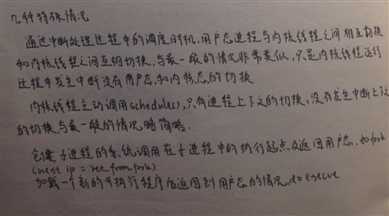 几种特殊情况
通过中断处理过程中的调度时机,用户态进程与内核线程之间相互切换
和内核线程之间互相切换,与最一般的情况非常类似,只是内核线程运行
过程中发生中断没有用户态和内核态的切换
内核线程主动调用schedule(),只有进程上下文的切换,没有发生中断上下文
的切换与最一般的情况略简略.
创建子进程的系统调用在子进程中的执行起点及返回用户态,如fork
(next_ip = ret_from_fork)
加载一个新的可执行程序后返回到用户态的情况,如execve